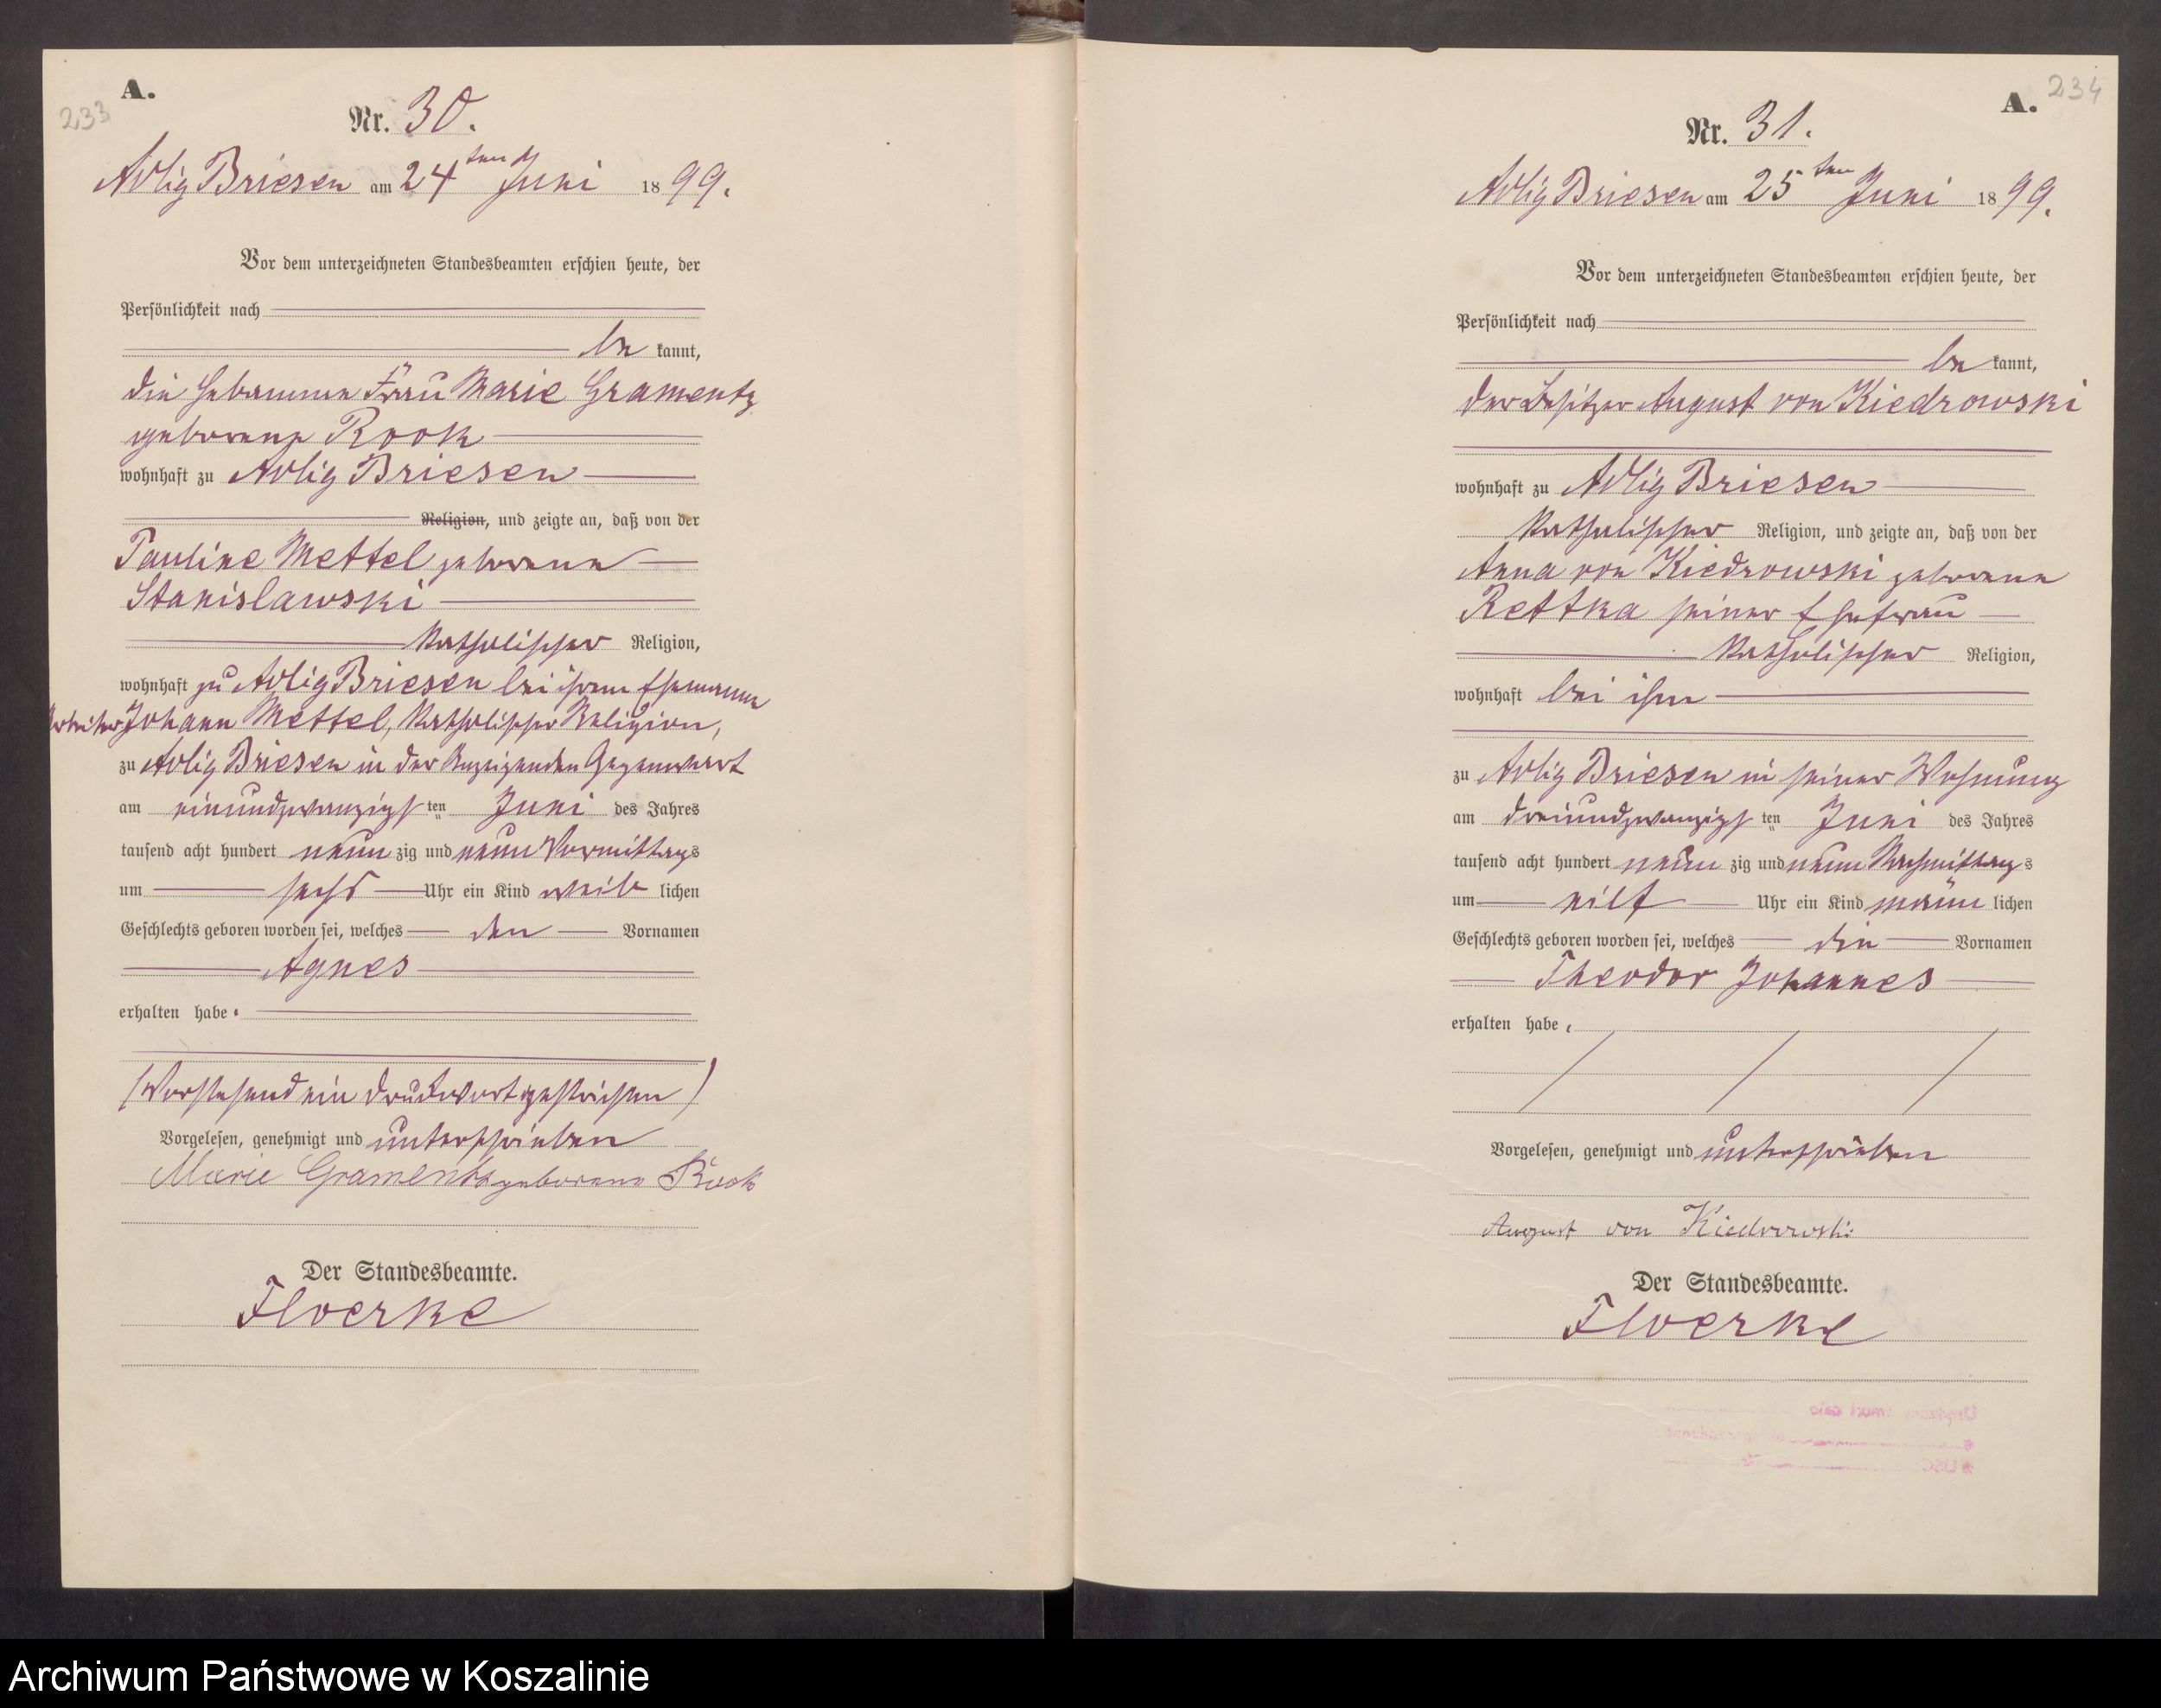 233
A.
Nr. 30.
Adlig Briesen am 24ten Juni 1899.
Vor dem unterzeichneten Standesbeamten erschien heute, der
Persönlichkeit nach
bekannt,
die Hebamme Frau Marie Gramentz
geborene Rook
wohnhaft zu Adlig Briesen
Religion, und zeigte an, daß von der
Pauline Mettel geborene
Stanislawski
katholischer Religion,
wohnhaft zu Adlig Briesen bei ihrem Ehemanne
Arbeiter Johann Mettel, katholischer Religion,
zu Adlig Briesen in der Anzeigenden Gegenwart
am einundzwanzigsten Juni des Jahres
tausend acht hundert neunzig und neun Vormittags
um sechs Uhr ein Kind weiblichen
Geschlechts geboren worden sei, welches den Vornamen
Agnes
erhalten habe.
(Vorstehend ein Druckwort gestrichen)
Vorgelesen, genehmigt und unterschrieben
Marie Gramentz geborene Rook
Der Standesbeamte.
Floerke
234
A.
Nr. 31.
Adlig Briesen am 25ten Juni 1899.
Vor dem unterzeichneten Standesbeamten erschien heute, der
Persönlichkeit nach
bekannt,
der Besitzer August von Kiedrowski
wohnhaft zu Adlig Briesen
katholischer Religion, und zeigte an, daß von der
Anna von Kiedrowski geborene
Rettka seiner Ehefrau
katholischer Religion,
wohnhaft bei ihm
zu Adlig Briesen in seiner Wohnung
am dreiundzwanzigsten Juni des Jahres
tausend acht hundert neunzig und neun Nachmittags
um elf Uhr ein Kind männlichen
Geschlechts geboren worden sei, welches die Vornamen
Theodor Johannes
erhalten habe.
Vorgelesen, genehmigt und unterschrieben
August von Kiedrowski
Der Standesbeamte.
Floerke
Archiwum Państwowe w Koszalinie